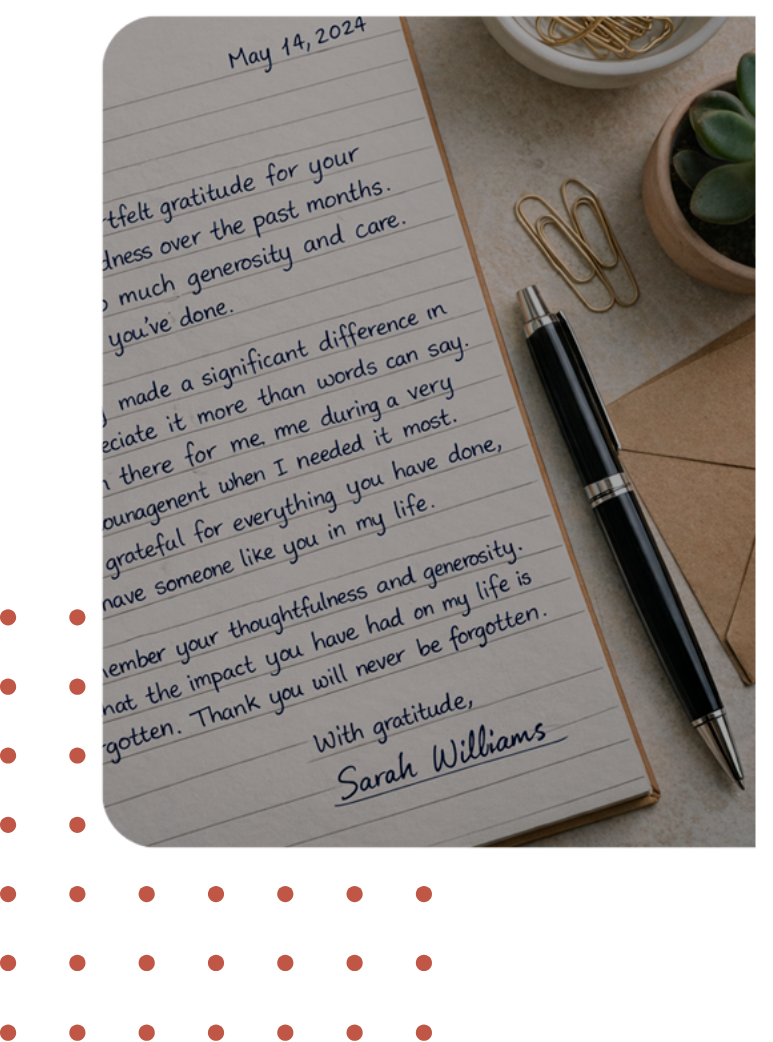 May 14, 2024
tfelt gratitude for your
dness over the past months.
much generosity and care.
you've done.
made a significant difference in
eciate it more than words can say.
there for me, me during a very
ounagenent when I needed it most.
grateful for everything you have done,
have someone like you in my life.
ember your thoughtfulness and generosity.
hat the impact you have had on my life is
gotten. Thank you will never be forgotten.
With gratitude,
Sarah Williams